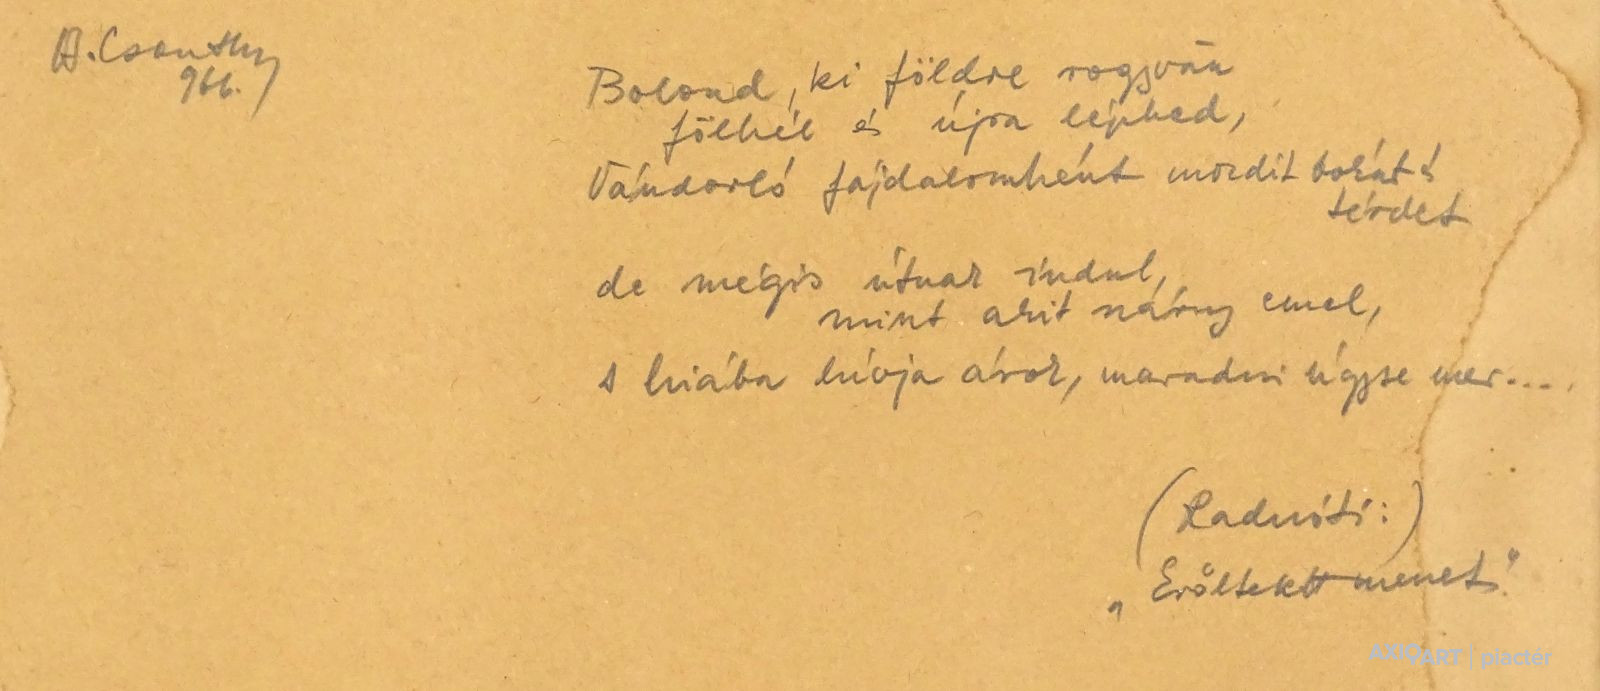 966.
Bolond, ki földre rogyván
fölkél és újra lépked,
Vándorló fájdalomként mozdit bokát s
térdet
de mégis útnak indul,
mint akit szárny emel,
s hiába hívja árok, maradni úgyse mer....
(Radnóti:)
„Erőltetett menet"
AXIOART | piactér